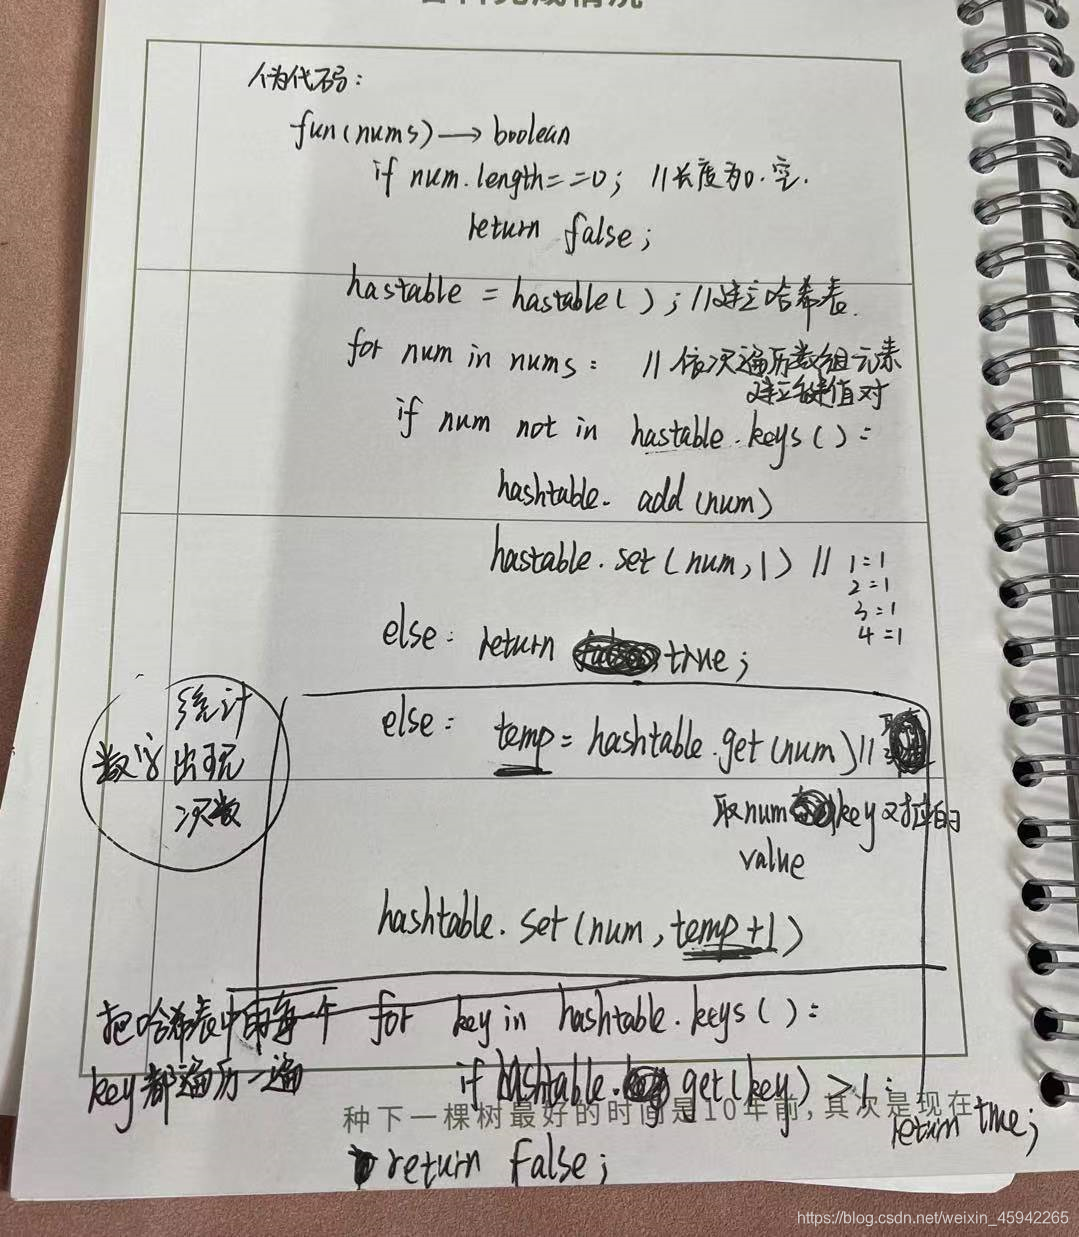 伪代码：
fun(nums) → boolean
if num.length==0; //长度为0.空.
return false;
hastable = hastable(); //建立哈希表.
for num in nums: //依次遍历数组元素
建立键值对
if num not in hastable.keys():
hashtable. add(num)
hastable.set(num,1) // 1=1
2=1
3=1
4=1
else: return true;
统计
数字出现
次数
else: temp = hashtable.get(num)//
取num key对应的
value
hashtable. set(num, temp+1)
把哈希表中的每一个 for key in hashtable.keys():
key都遍历一遍 if hashtable. get(key) > 1:
种下一棵树最好的时间是10年前,其次是现在
return true;
return false;
https://blog.csdn.net/weixin_45942265